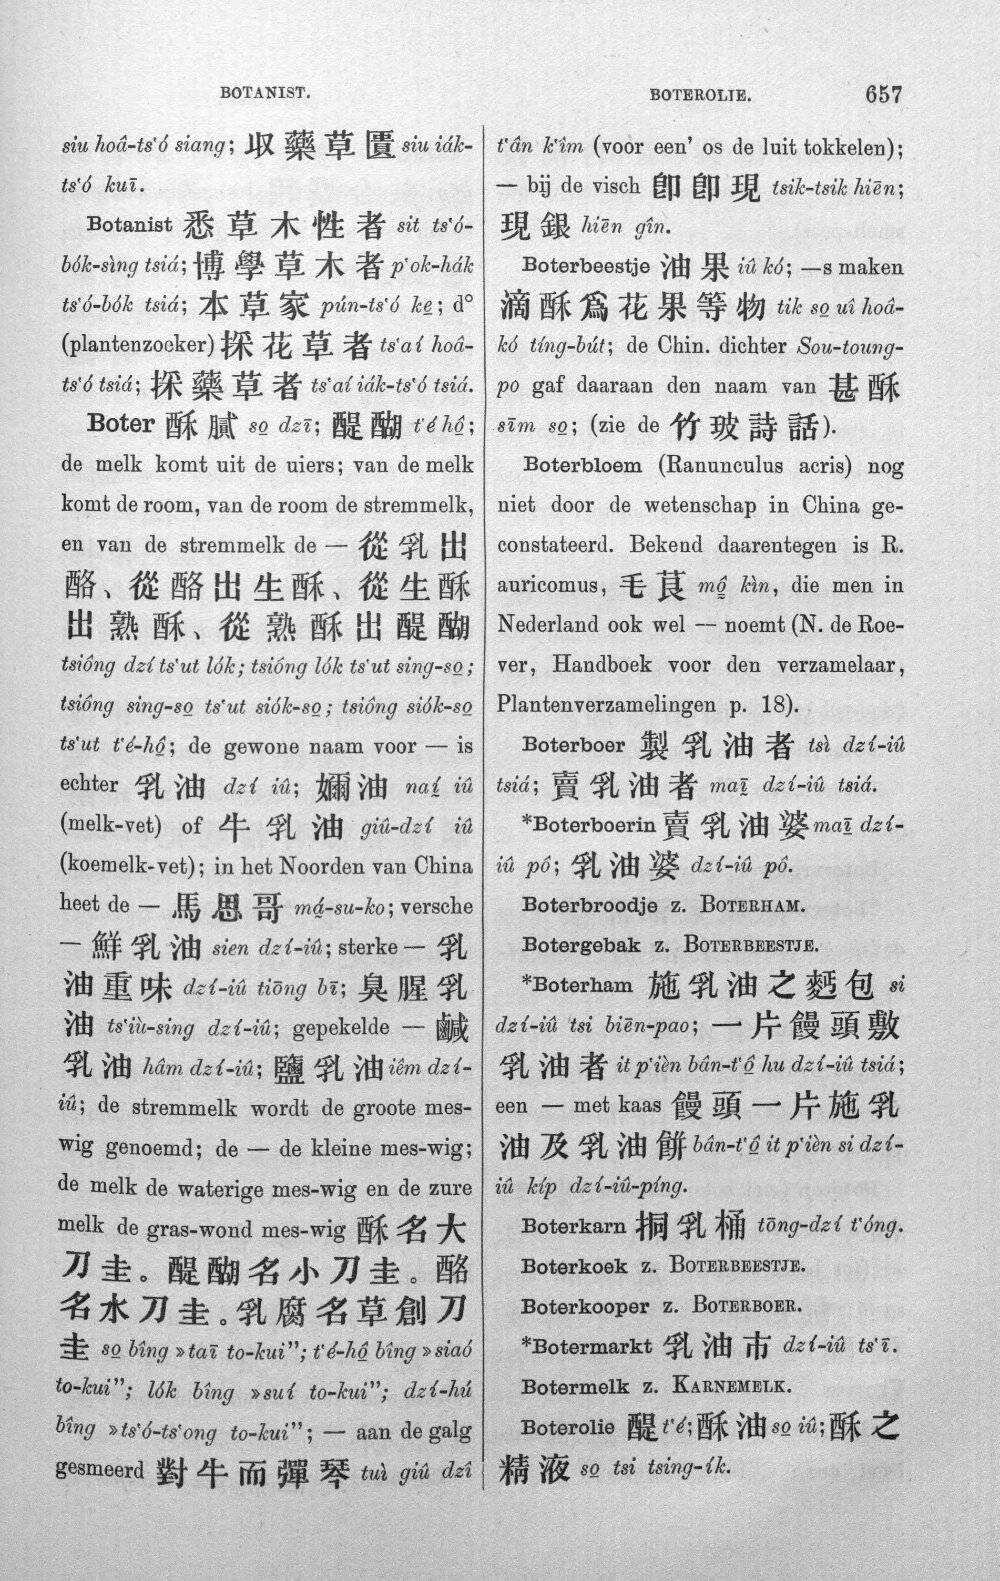 BOTANIST.
BOTEROLIE.
657
siu hoâ-ts‘ó siang; 収藥草匱 siu iák-
ts‘ó kuī.
Botanist 悉草木性者 sit ts‘ó-
bók-sìng tsiá; 博學草木者 p‘ok-hák
ts‘ó-bók tsiá; 本草家 pún-ts‘ó ke̤; d°
(plantenzoeker) 採花草者 ts‘aí hoâ-
ts‘ó tsiá; 採藥草者 ts‘aí iák-ts‘ó tsiá.
Boter 酥膩 so̤ dzī; 醍醐 t‘é hô̤;
de melk komt uit de uiers; van de melk
komt de room, van de room de stremmelk,
en van de stremmelk de — 從乳出
酪、從酪出生酥、從生酥
出熟酥、從熟酥出醍醐
tsiông dzí ts‘ut lók; tsiông lók ts‘ut sing-so̤;
tsiông sing-so̤ ts‘ut siók-so̤; tsiông siók-so̤
ts‘ut t‘é-hô̤; de gewone naam voor — is
echter 乳油 dzí iû; 嬭油 naí̤ iû
(melk-vet) of 牛乳油 giû-dzí iû
(koemelk-vet); in het Noorden van China
heet de — 馬思哥 má̤-su-ko; versche
— 鮮乳油 sien dzí-iû; sterke — 乳
油重味 dzí-iû tiōng bī; 臭腥乳
油 ts‘iù-sing dzí-iû; gepekelde — 鹹
乳油 hâm dzí-iû; 鹽乳油 iêm dzí-
iû; de stremmelk wordt de groote mes-
wig genoemd; de — de kleine mes-wig;
de melk de waterige mes-wig en de zure
melk de gras-wond mes-wig 酥名大
刀圭。醍醐名小刀圭。酪
名水刀圭。乳腐名草創刀
圭 so̤ bîng »taī to-kui”; t‘é-hô̤ bîng »siaó
to-kui”; lók bîng »suí to-kui”; dzí-hú
bîng »ts‘ó-ts‘ong to-kui”; — aan de galg
gesmeerd 對牛而彈琴 tuì giû dzî
t‘ân k‘îm (voor een’ os de luit tokkelen);
— bij de visch 卽卽現 tsik-tsik hiēn;
現銀 hiēn gîn.
Boterbeestje 油果 iû kó; —s maken
滴酥爲花果等物 tik so̤ uî hoâ-
kó tíng-bút; de Chin. dichter Sou-toung-
po gaf daaraan den naam van 甚酥
sīm so̤; (zie de 竹玻詩話).
Boterbloem (Ranunculus acris) nog
niet door de wetenschap in China ge-
constateerd. Bekend daarentegen is R.
auricomus, 毛茛 mô̤ kìn, die men in
Nederland ook wel — noemt (N. de Roe-
ver, Handboek voor den verzamelaar,
Plantenverzamelingen p. 18).
Boterboer 製乳油者 tsì dzí-iû
tsiá; 賣乳油者 maī̤ dzí-iû tsiá.
*Boterboerin 賣乳油婆 maī̤ dzí-
iû pô; 乳油婆 dzí-iû pô.
Boterbroodje z. BOTERHAM.
Botergebak z. BOTERBEESTJE.
*Boterham 施乳油之麪包 si
dzí-iû tsi biēn-pao; 一片饅頭敷
乳油者 it p‘ièn bân-t‘ô̤ hu dzí-iû tsiá;
een — met kaas 饅頭一片施乳
油及乳油餅 bân-t‘ô̤ it p‘ièn si dzí-
iû kíp dzí-iû-píng.
Boterkarn 挏乳桶 tōng-dzí t‘óng.
Boterkoek z. BOTERBEESTJE.
Boterkooper z. BOTERBOER.
*Botermarkt 乳油市 dzí-iû ts‘ī.
Botermelk z. KARNEMELK.
Boterolie 醍 t‘é; 酥油 so̤ iû; 酥之
精液 so̤ tsi tsing-ík.